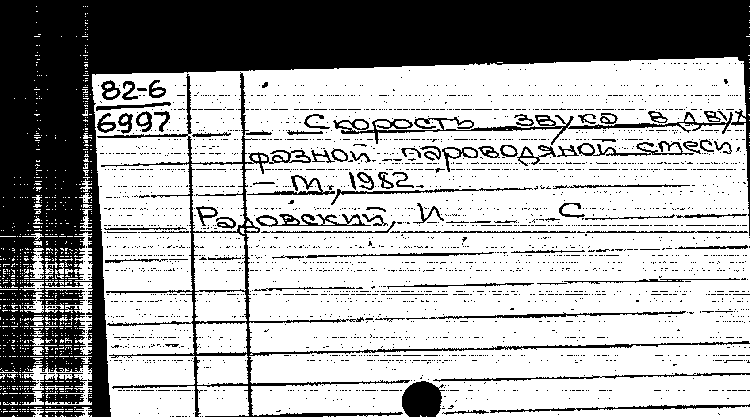 82-6
6997
Скорость звука в двух
фазной пароводяной смеси.
– М., 1982.
Радовский, И С